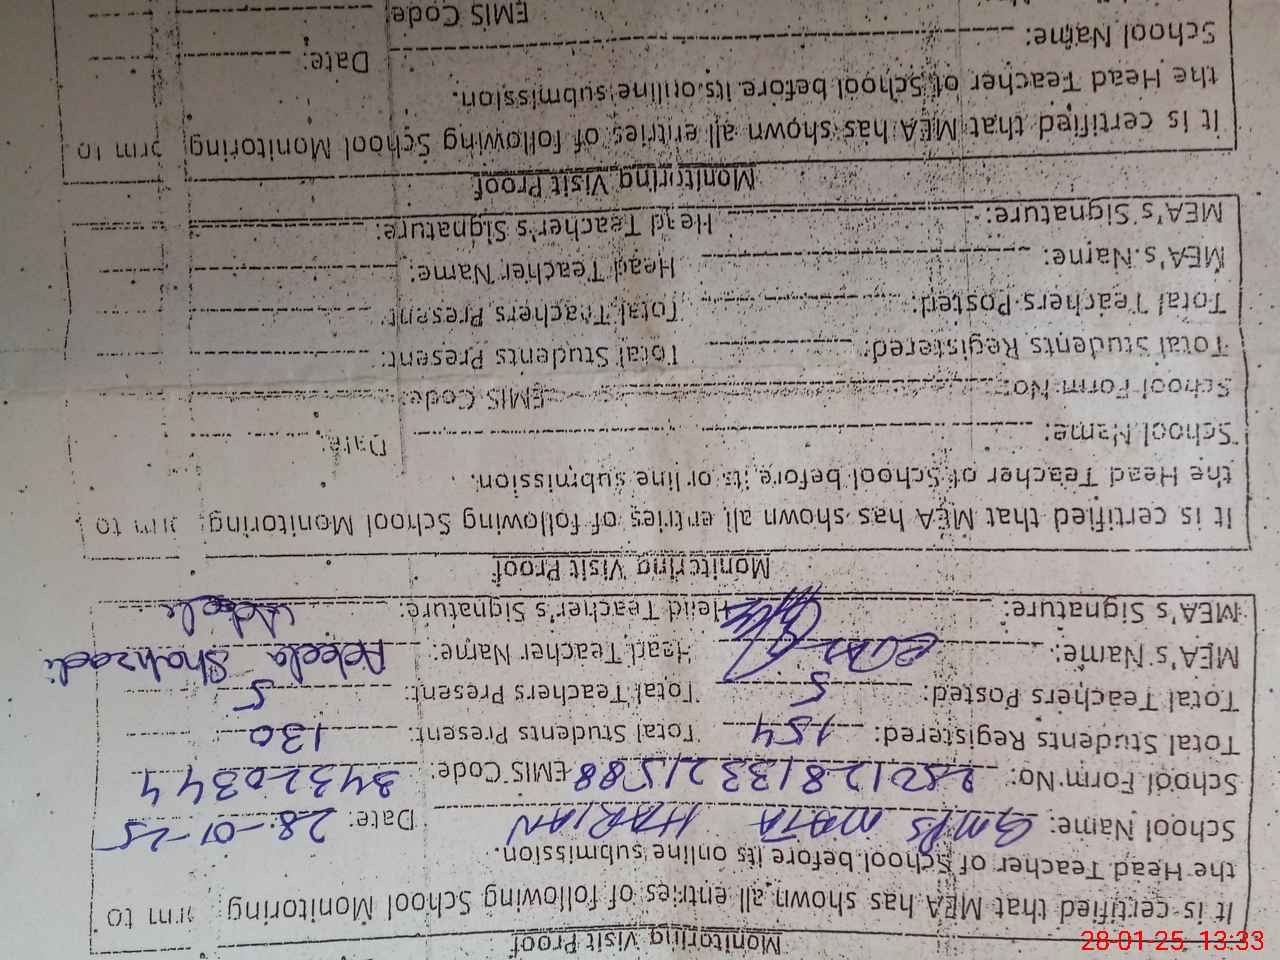 Monitoring Visit Proof
It is certified that MEA has shown all entries of following School Monitoring orm to
the Head Teacher of School before its online submission.
School Name: GMPS MATA HARIAN Date: 28-01-25
School Form No: 250128133321588 EMIS Code: 34320344
Total Students Registered: 154 Total Students Present: 130
Total Teachers Posted: 5 Total Teachers Present: 5
MEA's Name: Head Teacher Name: Adeela Shahzadi
MEA's Signature: Head Teacher's Signature: Adeela
Monitoring Visit Proof
It is certified that MEA has shown all entries of following School Monitoring orm to
the Head Teacher of School before its online submission.
School Name: Date:
School Form No: EMIS Code:
Total Students Registered: Total Students Present:
Total Teachers Posted: Total Teachers Present:
MEA's Name: Head Teacher Name:
MEA's Signature: Head Teacher's Signature:
Monitoring Visit Proof
It is certified that MEA has shown all entries of following School Monitoring orm to
the Head Teacher of School before its online submission.
School Name: Date:
EMIS Code
28-01-25 13:33